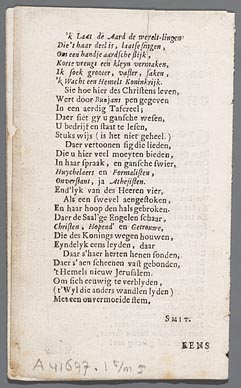 'k Laat de Aard de werelt-lingen
Die 't haar deel is, laatse singen,
Om een handje aardsche slijk,
Korte vreugt een kleyn vermaken,
Ik soek grooter, vaster, saken,
'k Wacht een Hemels Koninkrijk.
Sie hoe hier des Christens leven,
Wert door Bunjans pen gegeven
In een aerdig Tafereel;
Daer siet gy u gansche wesen,
U bedrijf en staat te lesen,
Stuks wijs (is het niet geheel.)
Daer vertoonen sig die lieden,
Die u hier veel moeyten bieden,
In haar spraak, en gansche swier,
Huychelaers en Formalisten,
Onverstant, ja Atheijisten.
End'lyk van des Heeren vier,
Als een swevel aengestoken,
En haar hoop den hals gebroken.
Daer de Saal'ge Engelen schaar,
Christen, Hopend' en Getrouwe,
Die des Konings wegen houwen,
Eyndelyk eens leyden, daar
Daar s'haer herten henen sonden,
Daer s'aen scheenen vast gebonden,
't Hemels nieuw Jerusalem.
Om sich eeuwig te verblyden,
(t'Wyl die anders wandlen lyden)
Met een onvermoeide stem,
SMIT.
EENS
A 41697.